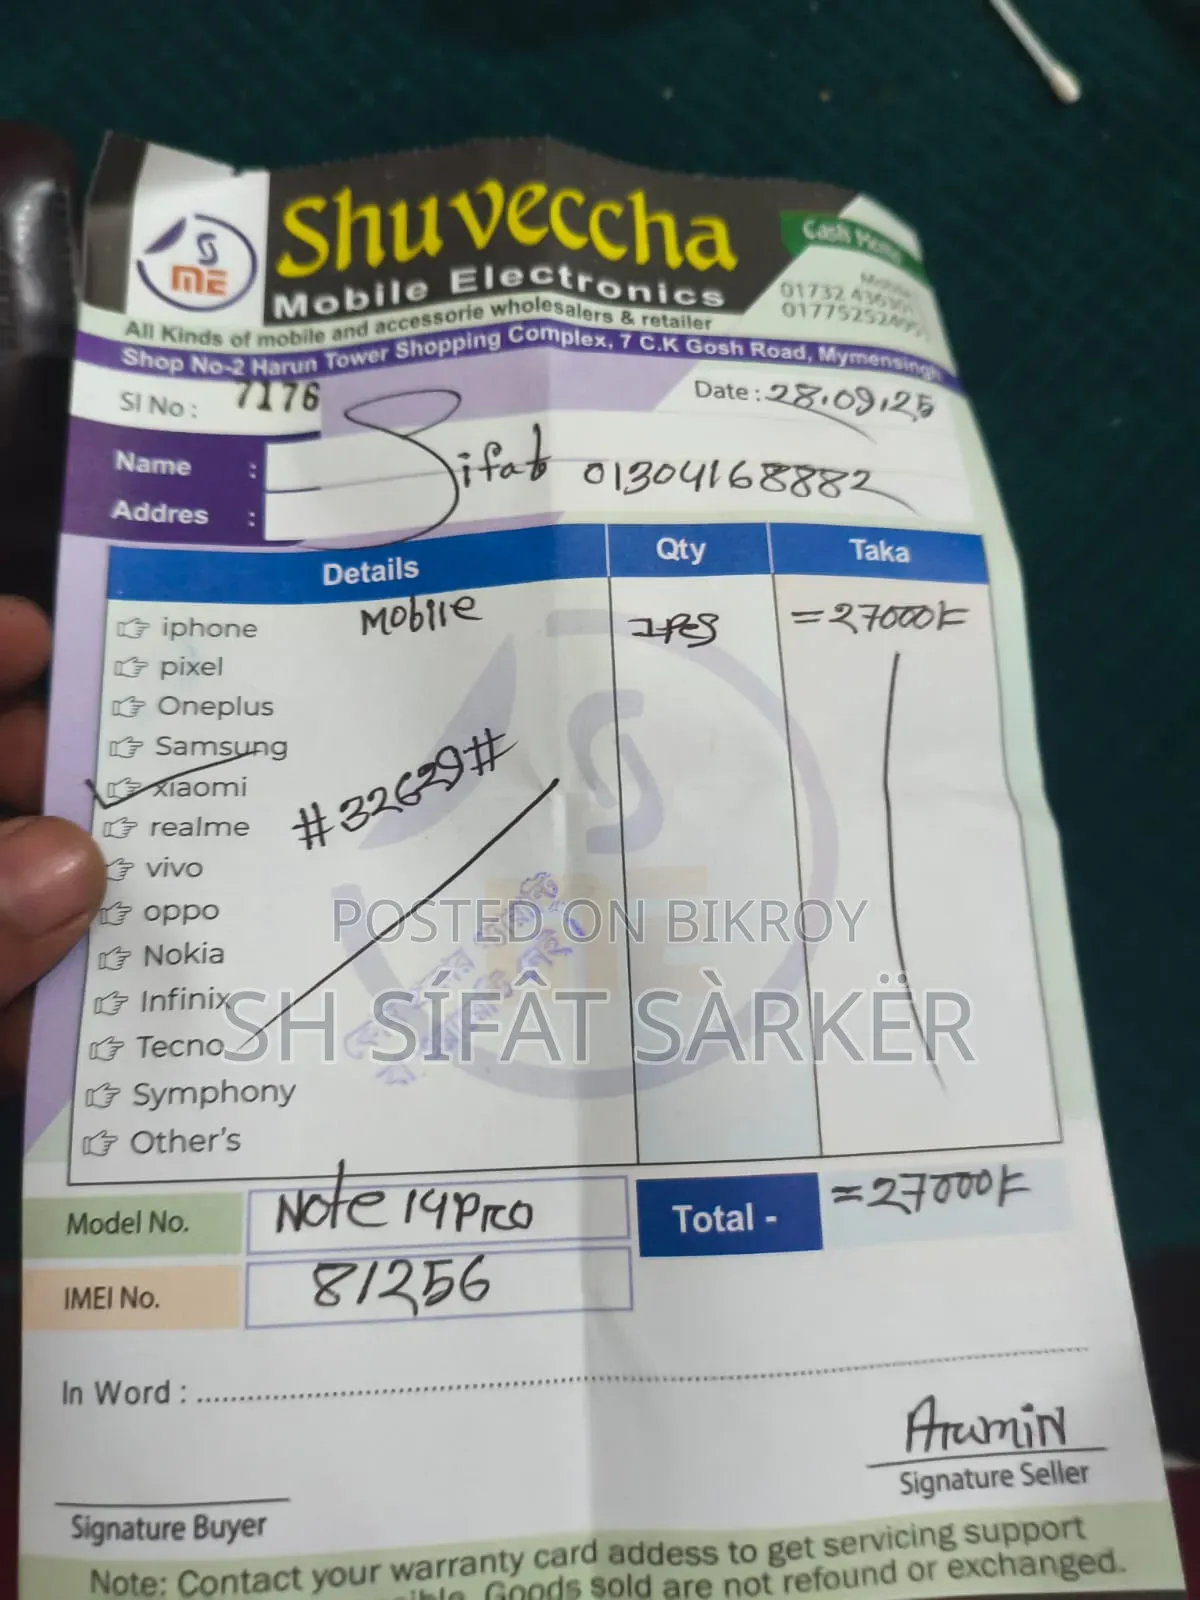 S
ME
Shuveccha
Mobile Electronics
Cash Memo
All Kinds of mobile and accessorie wholesalers & retailer
Shop No-2 Harun Tower Shopping Complex, 7 C.K Gosh Road, Mymensingh
Sl No : 7176
Date : 28.09.25
Name : Sifat 01304168882
Addres :
Details Qty Taka
iphone Mobile 1Pcs =27000/=
pixel
Oneplus
Samsung
xiaomi
#32629#
realme
vivo
oppo
POSTED ON BIKROY
Nokia
Infinix
SH SÍFÂT SÀRKËR
Tecno
Symphony
Other's
Model No. Note 14 Pro Total - =27000/=
IMEI No. 81256
In Word :
Signature Buyer
Signature Seller
Note: Contact your warranty card addess to get servicing support
Goods sold are not refound or exchanged.